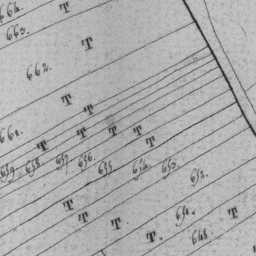 664.
663. T
T
662.
T
T
661. T T T T
659 658 657 656. 655 654 653 652.
T
T T
T. 651. T
648.